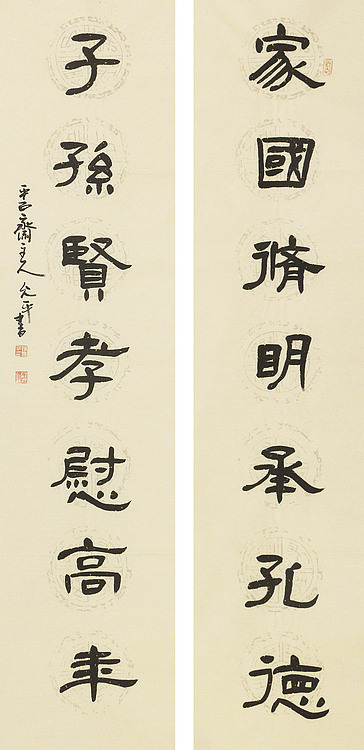 家國脩明承孔德
子孫賢孝慰高年
齋主人允平書